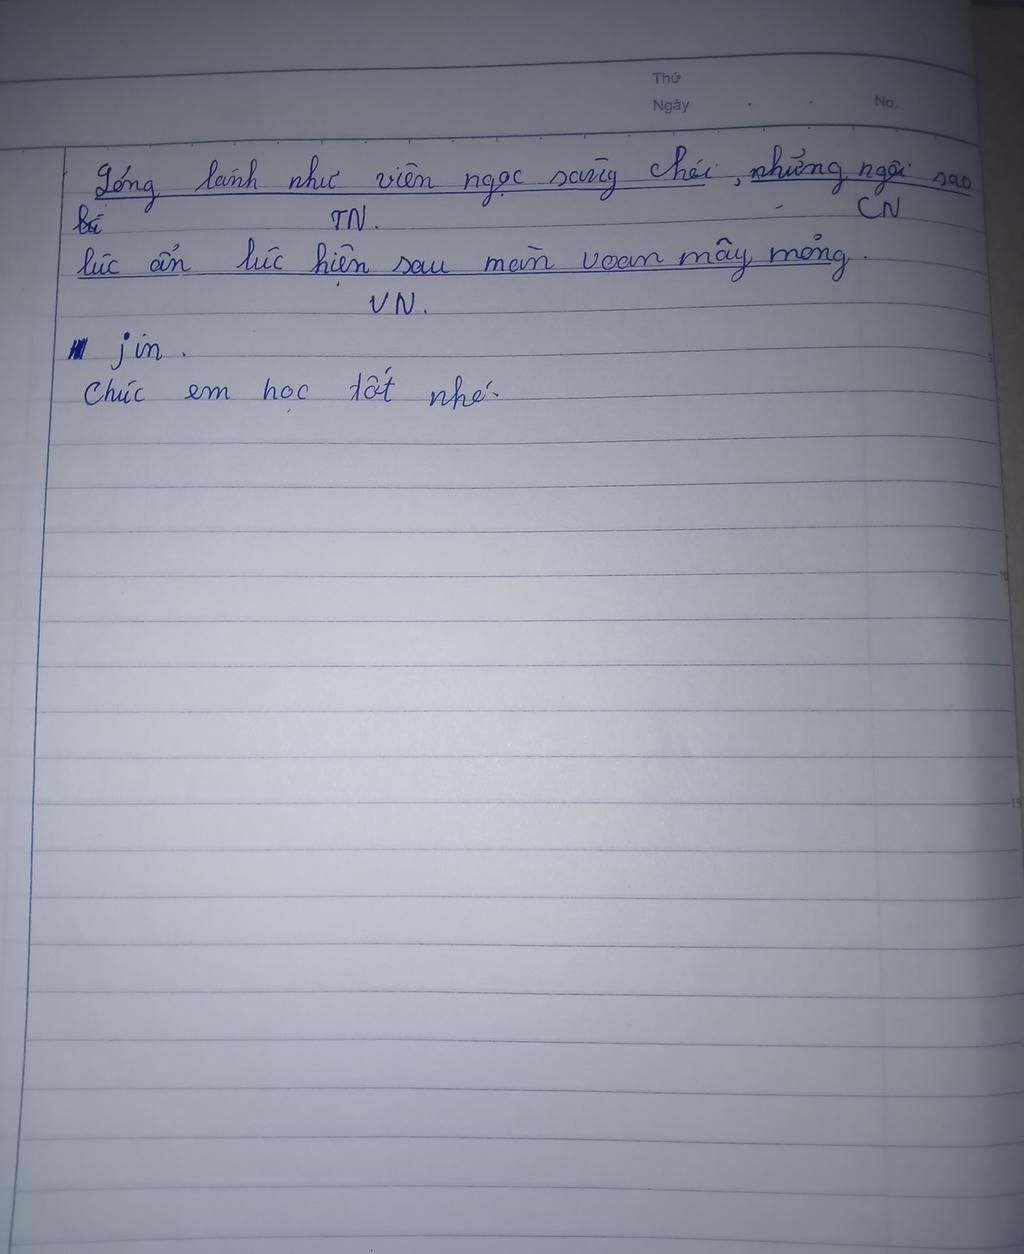 Thứ
Ngày . . No.
Lóng lánh như viên ngọc sáng chói, những ngôi sao
TN. CN
lúc ẩn lúc hiện sau màn voan mây mỏng.
VN.
jin.
Chúc em học tốt nhé.
5
10
15